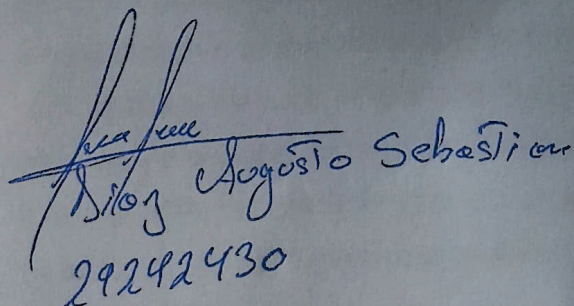 Diaz Augusto Sebastian
29242430